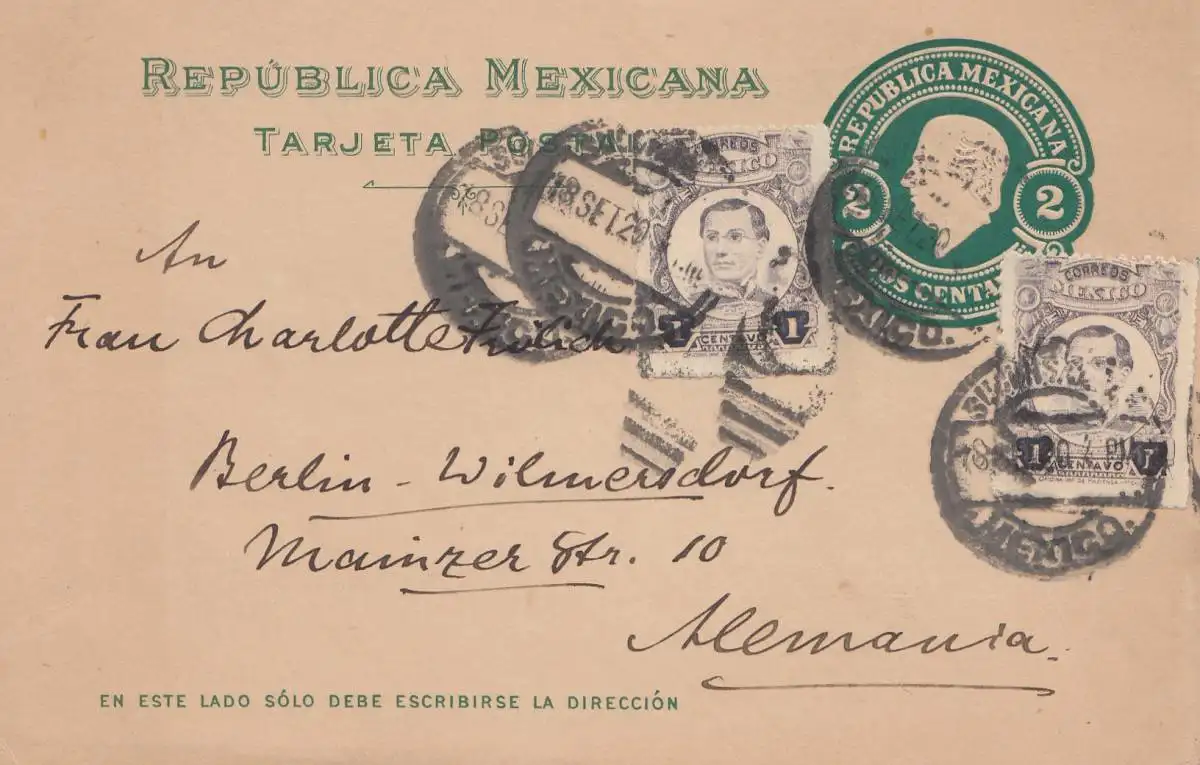 REPÚBLICA MEXICANA
TARJETA POSTAL
REPUBLICA MEXICANA
2 2
DOS CENTAVOS
18 SET 20
MEXICO.
CORREOS
MEXICO
1 CENTAVO 1
MEXICO.
CORREOS
MEXICO
1 CENTAVO 1
MEXICO.
An
Frau Charlotte
Berlin Wilmersdorf.
Mainzer Str. 10
Alemania.
EN ESTE LADO SÓLO DEBE ESCRIBIRSE LA DIRECCIÓN